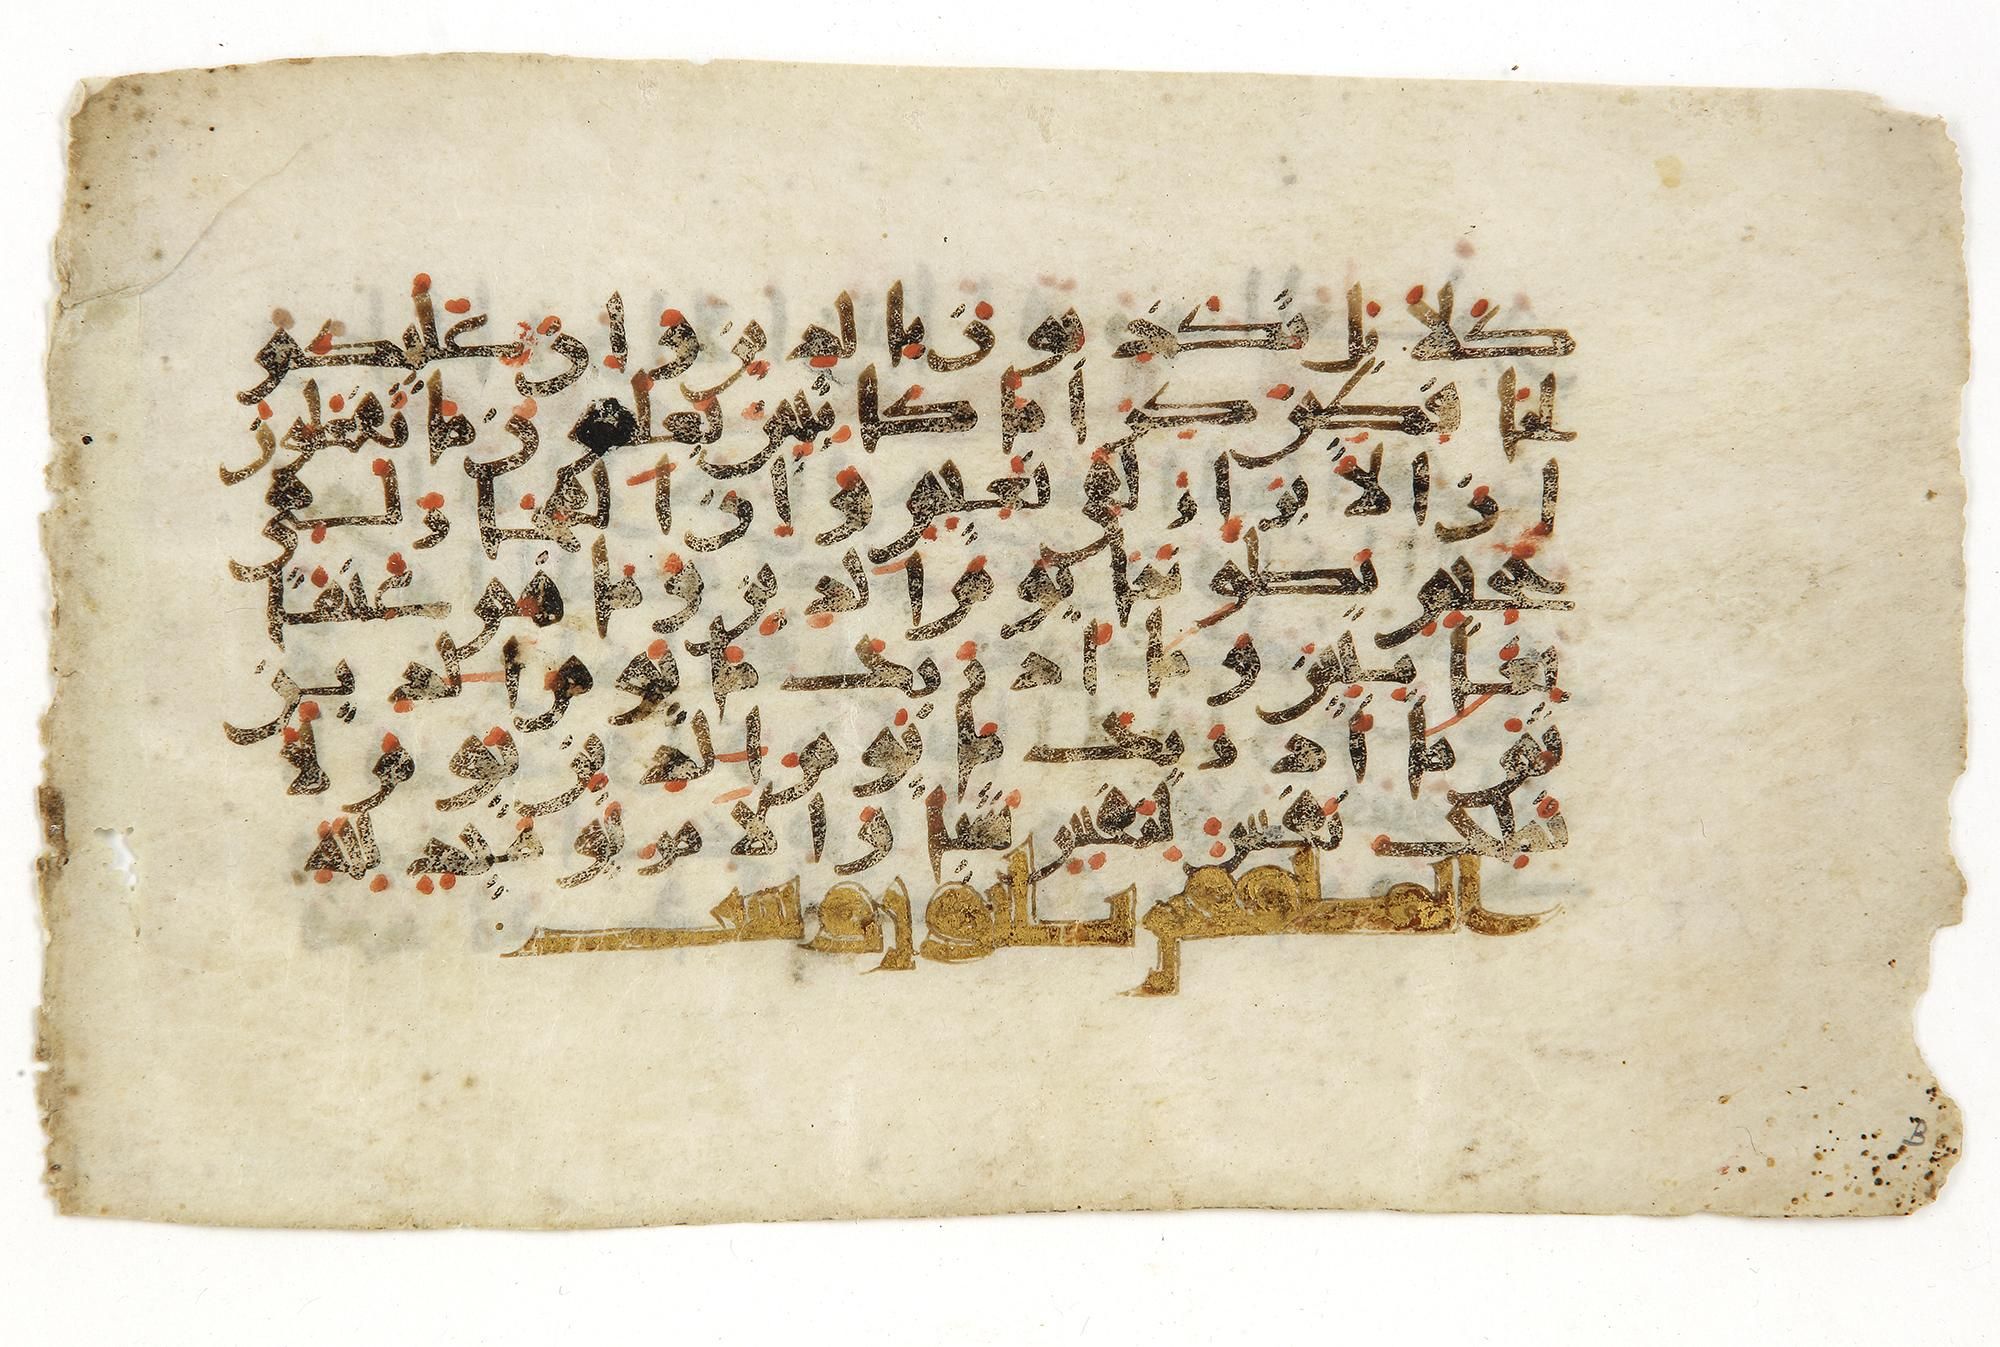 كلا بل تكذبون بالدين وان عليكم
لحافظين كراما كاتبين يعلمون ما تفعلون
ان الابرار لفي نعيم وان الفجار لفي
جحيم يصلونها يوم الدين وما هم عنها
بغائبين وما ادريك ما يوم الدين
ثم ما ادريك ما يوم الدين يوم لا
تملك نفس لنفس شيا والامر يومئذ لله
المطففين ثلثون وست